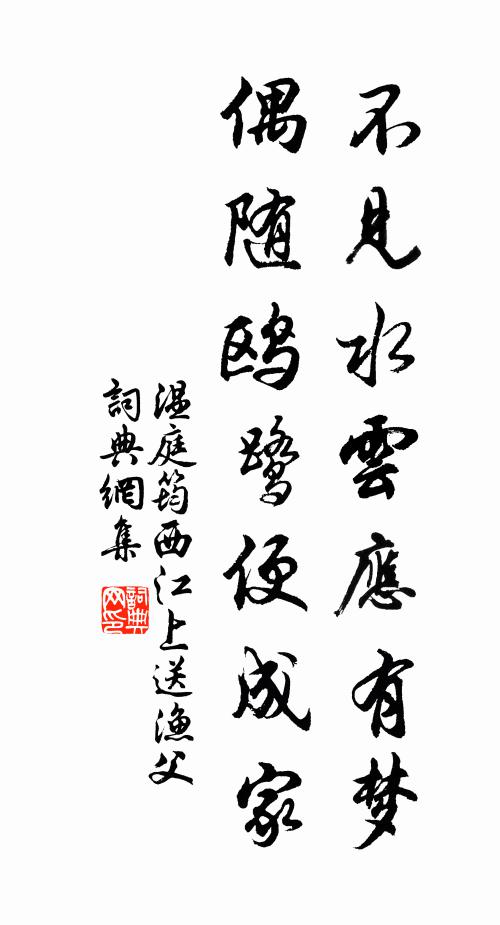 不見水雲應有梦
偶随鸥鹭便成家
温庭筠西江上送渔父
詞典網集
詞典
网印